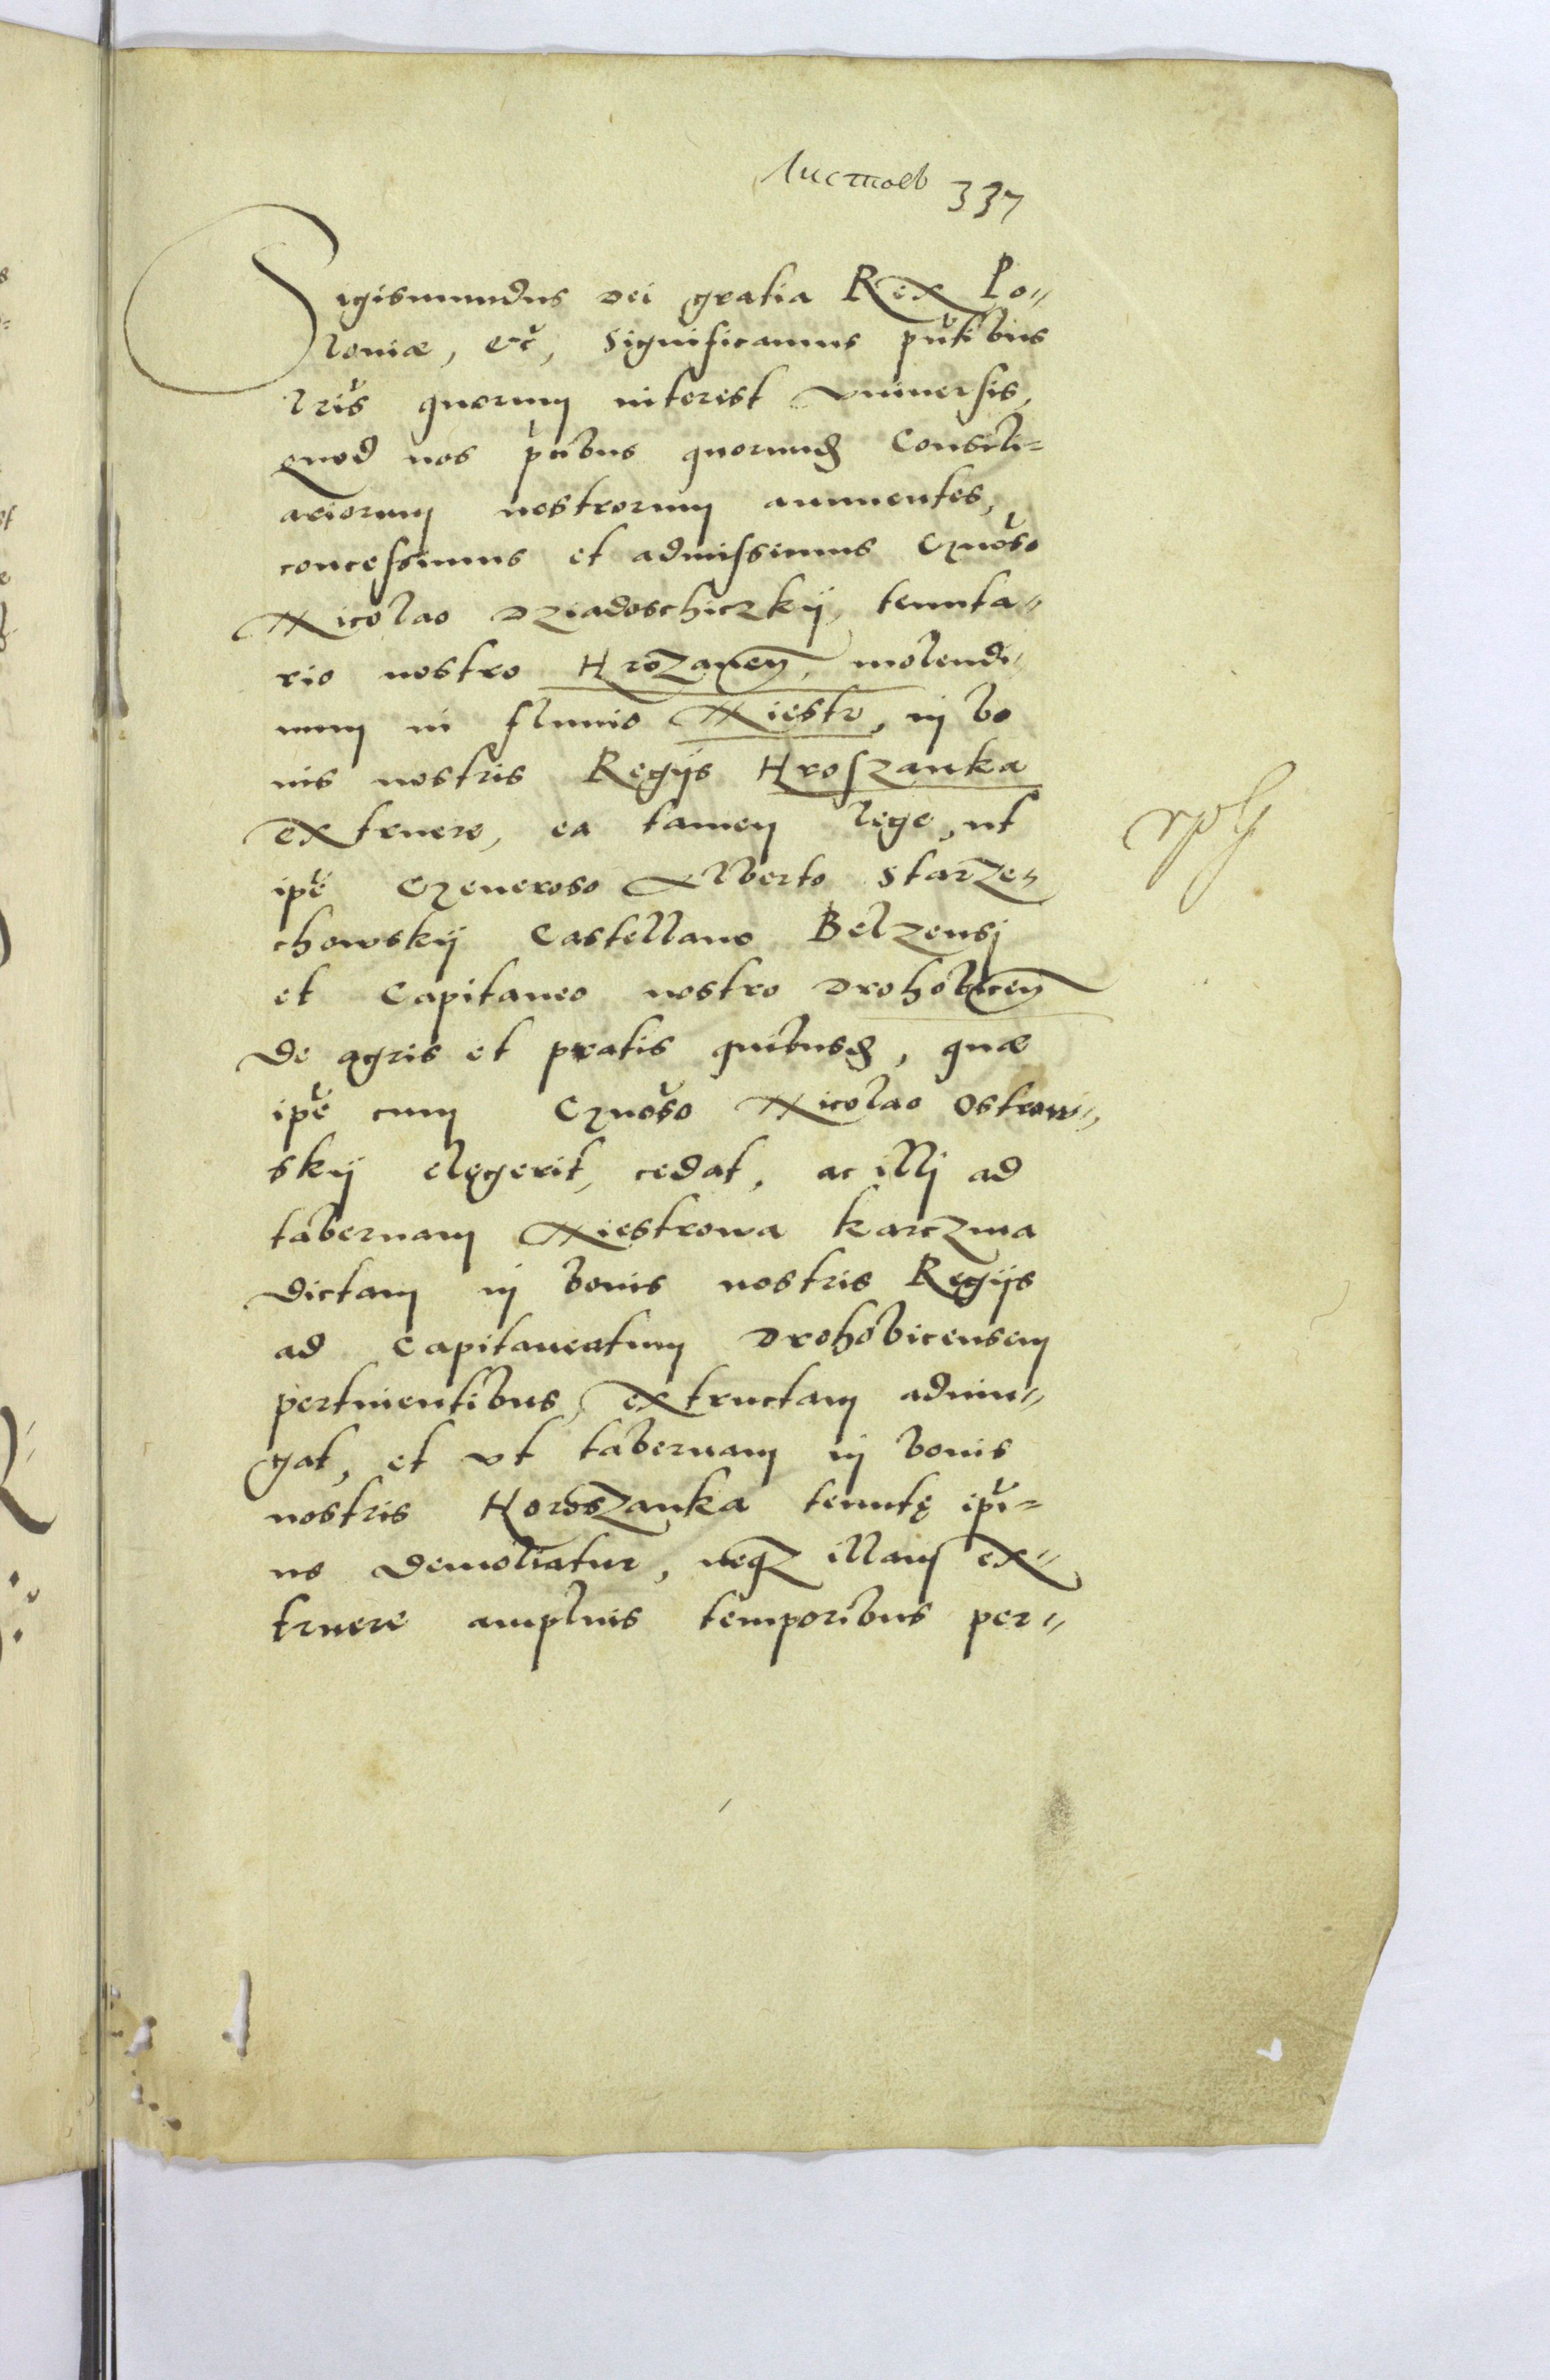 Листовъ 337
Sigismundus Dei gratia Rex Po„
loniæ, etc̃, Significamus pñtibus
lr̃is quorum interest vniuersis,
Quod nos p̃cibus quorund Consili=
ariorum nostrorum annuentes,
concessimus et admissimus Gnõso
Nicolao Dziadoschiczkÿ, tenuta„
rio nostro Hrozaneñ, molendi„
num in fluuio Niestr, in bo
nis nostris Regÿs Hroszanka
extruere, ea tamen lege, ut
ip̃e Generoso Alberto Starze„
chowskÿ Castellano Belzensj
et Capitaneo nostro Drohobiceñ
de agris et pratis quibusd, quæ
ip̃e cum Gnõso Nicolao Ostrow„
skÿ elęgerit, cedat, ac illj ad
tabernam Niestrowa karczma
dictam in bonis nostris Regÿs
ad Capitaneatum Drohobicensem
pertinentibus, extructam adiun„
gat, et vt tabernam in bonis
nostris Horoszanka tenutę ip̃i=
us demoliatur, neq3 illam ex„
truere amplius temporibus per„